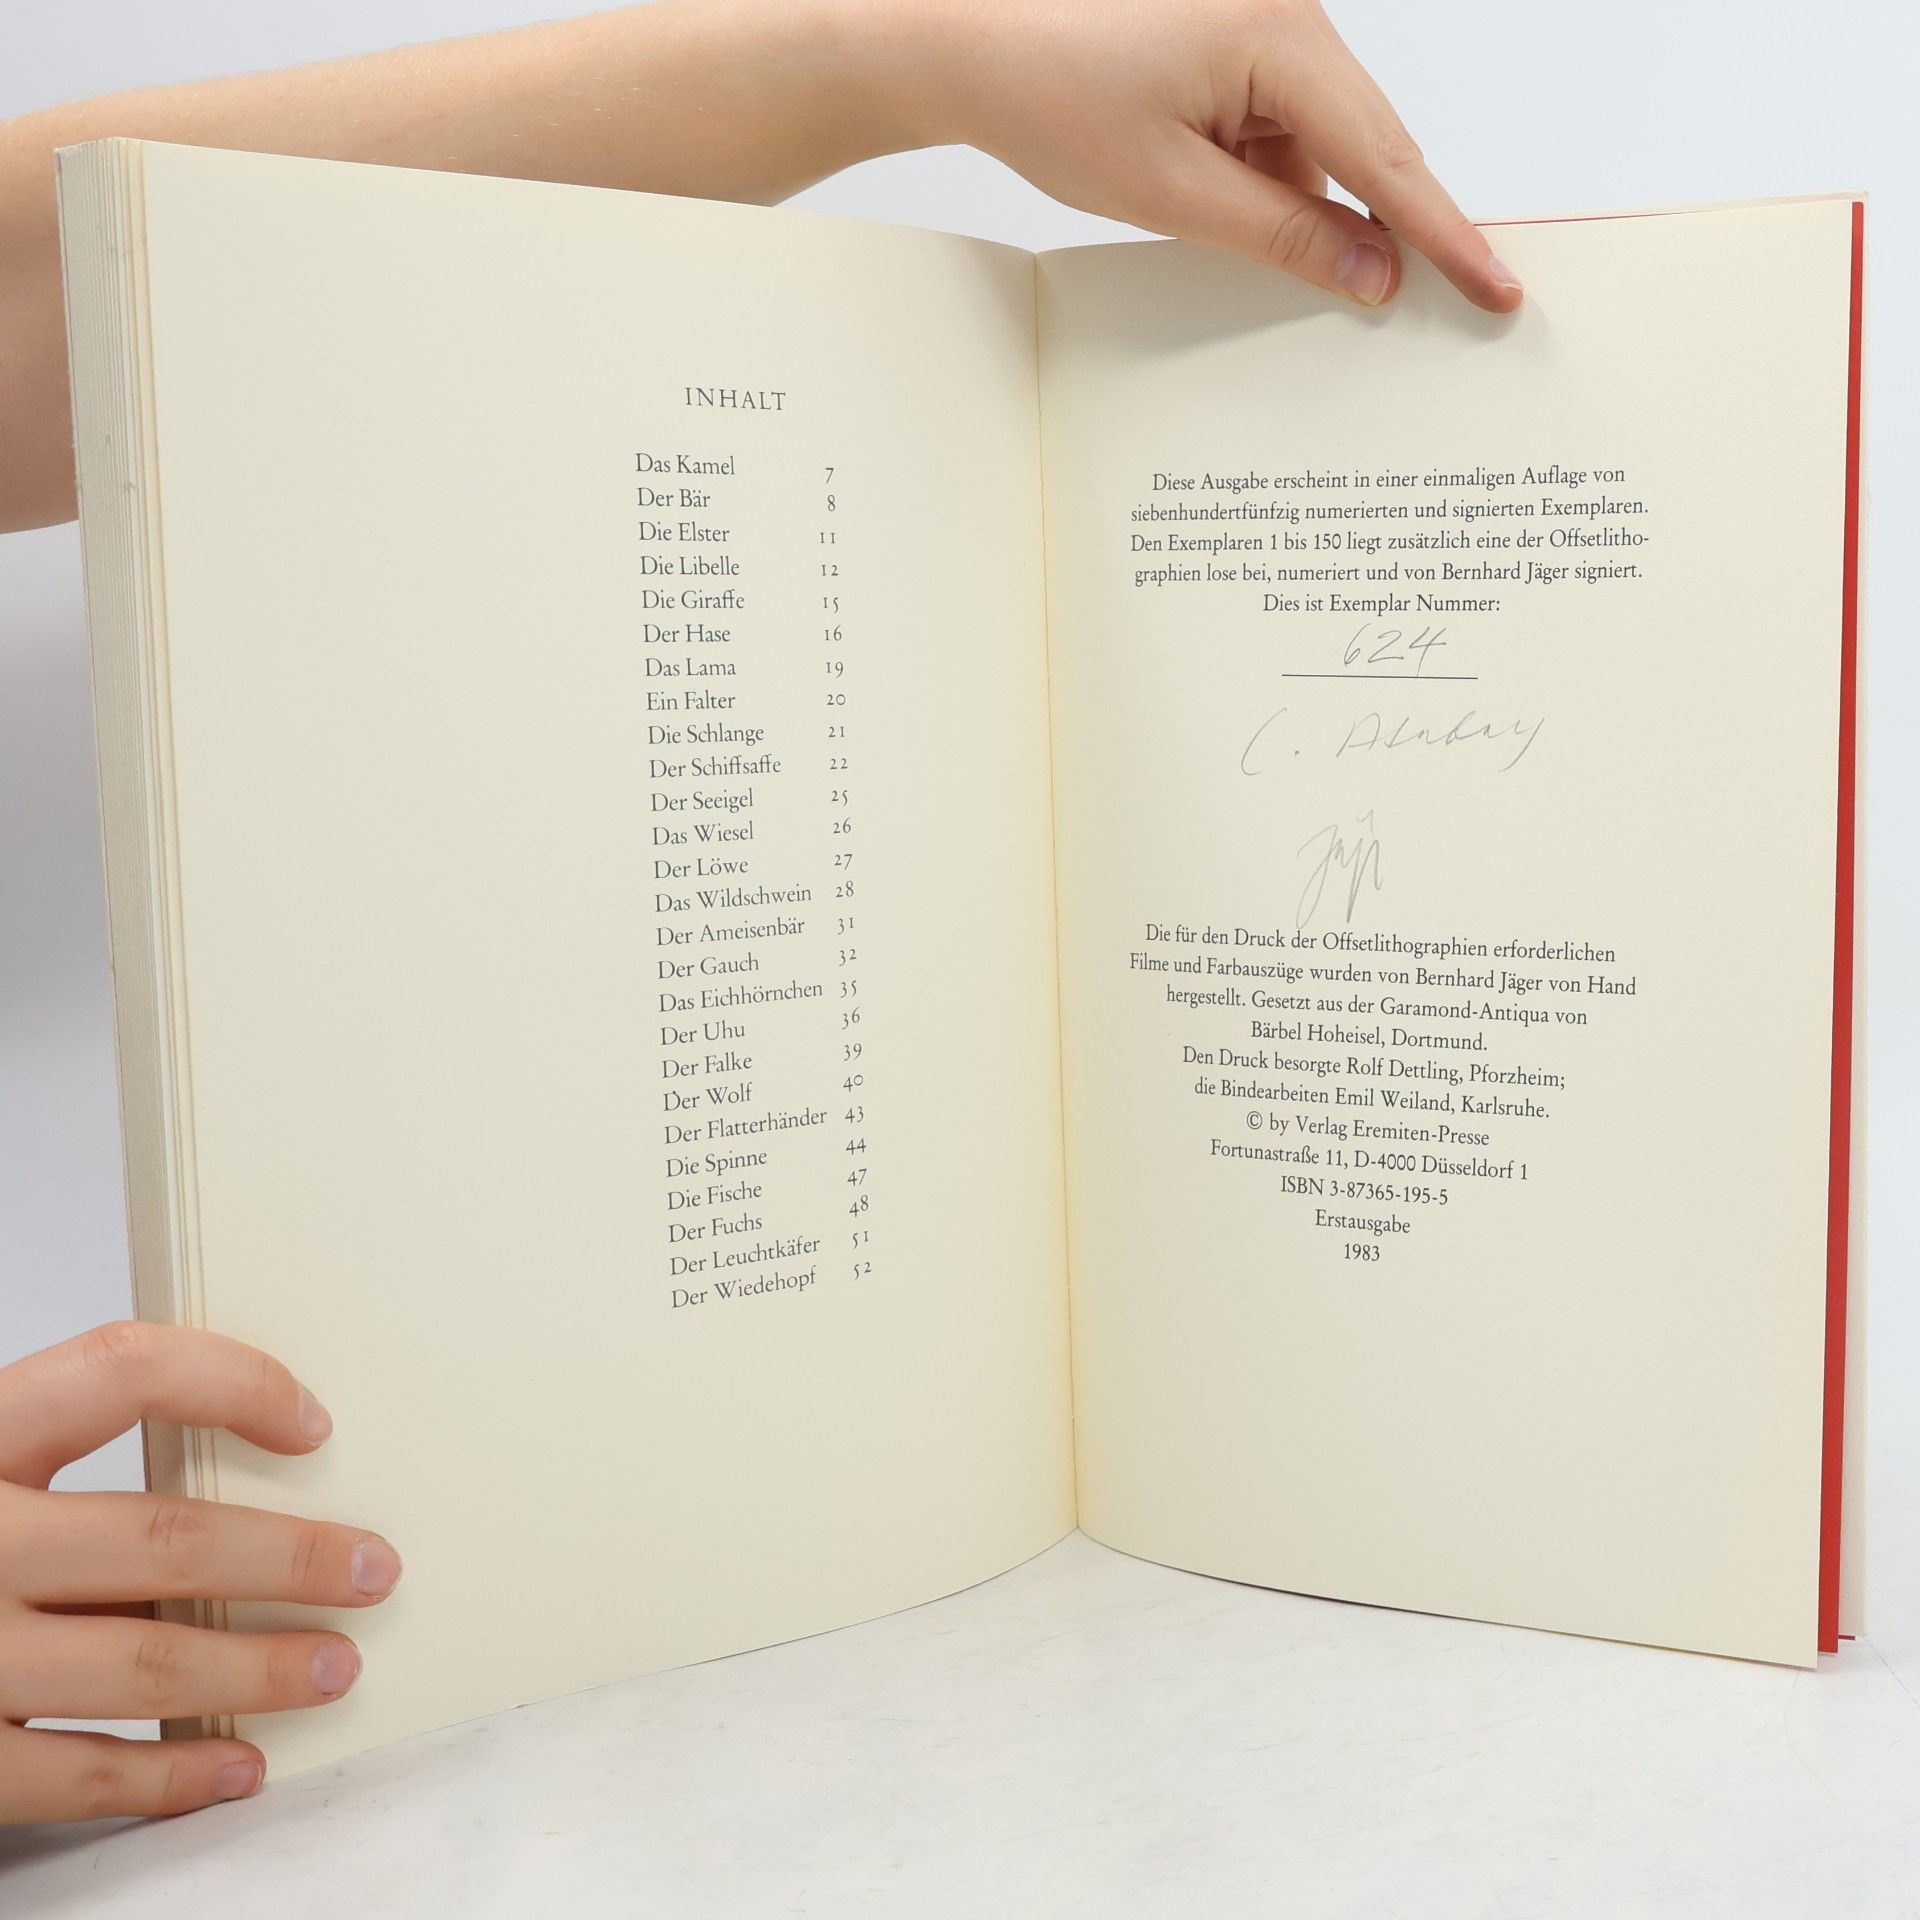 INHALT
Das Kamel 7
Der Bär 8
Die Elster 11
Die Libelle 12
Die Giraffe 15
Der Hase 16
Das Lama 19
Ein Falter 20
Die Schlange 21
Der Schiffsaffe 22
Der Seeigel 25
Das Wiesel 26
Der Löwe 27
Das Wildschwein 28
Der Ameisenbär 31
Der Gauch 32
Das Eichhörnchen 35
Der Uhu 36
Der Falke 39
Der Wolf 40
Der Flatterhänder 43
Die Spinne 44
Die Fische 47
Der Fuchs 48
Der Leuchtkäfer 51
Der Wiedehopf 52
Diese Ausgabe erscheint in einer einmaligen Auflage von
siebenhundertfünfzig numerierten und signierten Exemplaren.
Den Exemplaren 1 bis 150 liegt zusätzlich eine der Offsetlitho-
graphien lose bei, numeriert und von Bernhard Jäger signiert.
Dies ist Exemplar Nummer:
624
C. Atabay
Die für den Druck der Offsetlithographien erforderlichen
Filme und Farbauszüge wurden von Bernhard Jäger von Hand
hergestellt. Gesetzt aus der Garamond-Antiqua von
Bärbel Hoheisel, Dortmund.
Den Druck besorgte Rolf Dettling, Pforzheim;
die Bindearbeiten Emil Weiland, Karlsruhe.
© by Verlag Eremiten-Presse
Fortunastraße 11, D-4000 Düsseldorf 1
ISBN 3-87365-195-5
Erstausgabe
1983